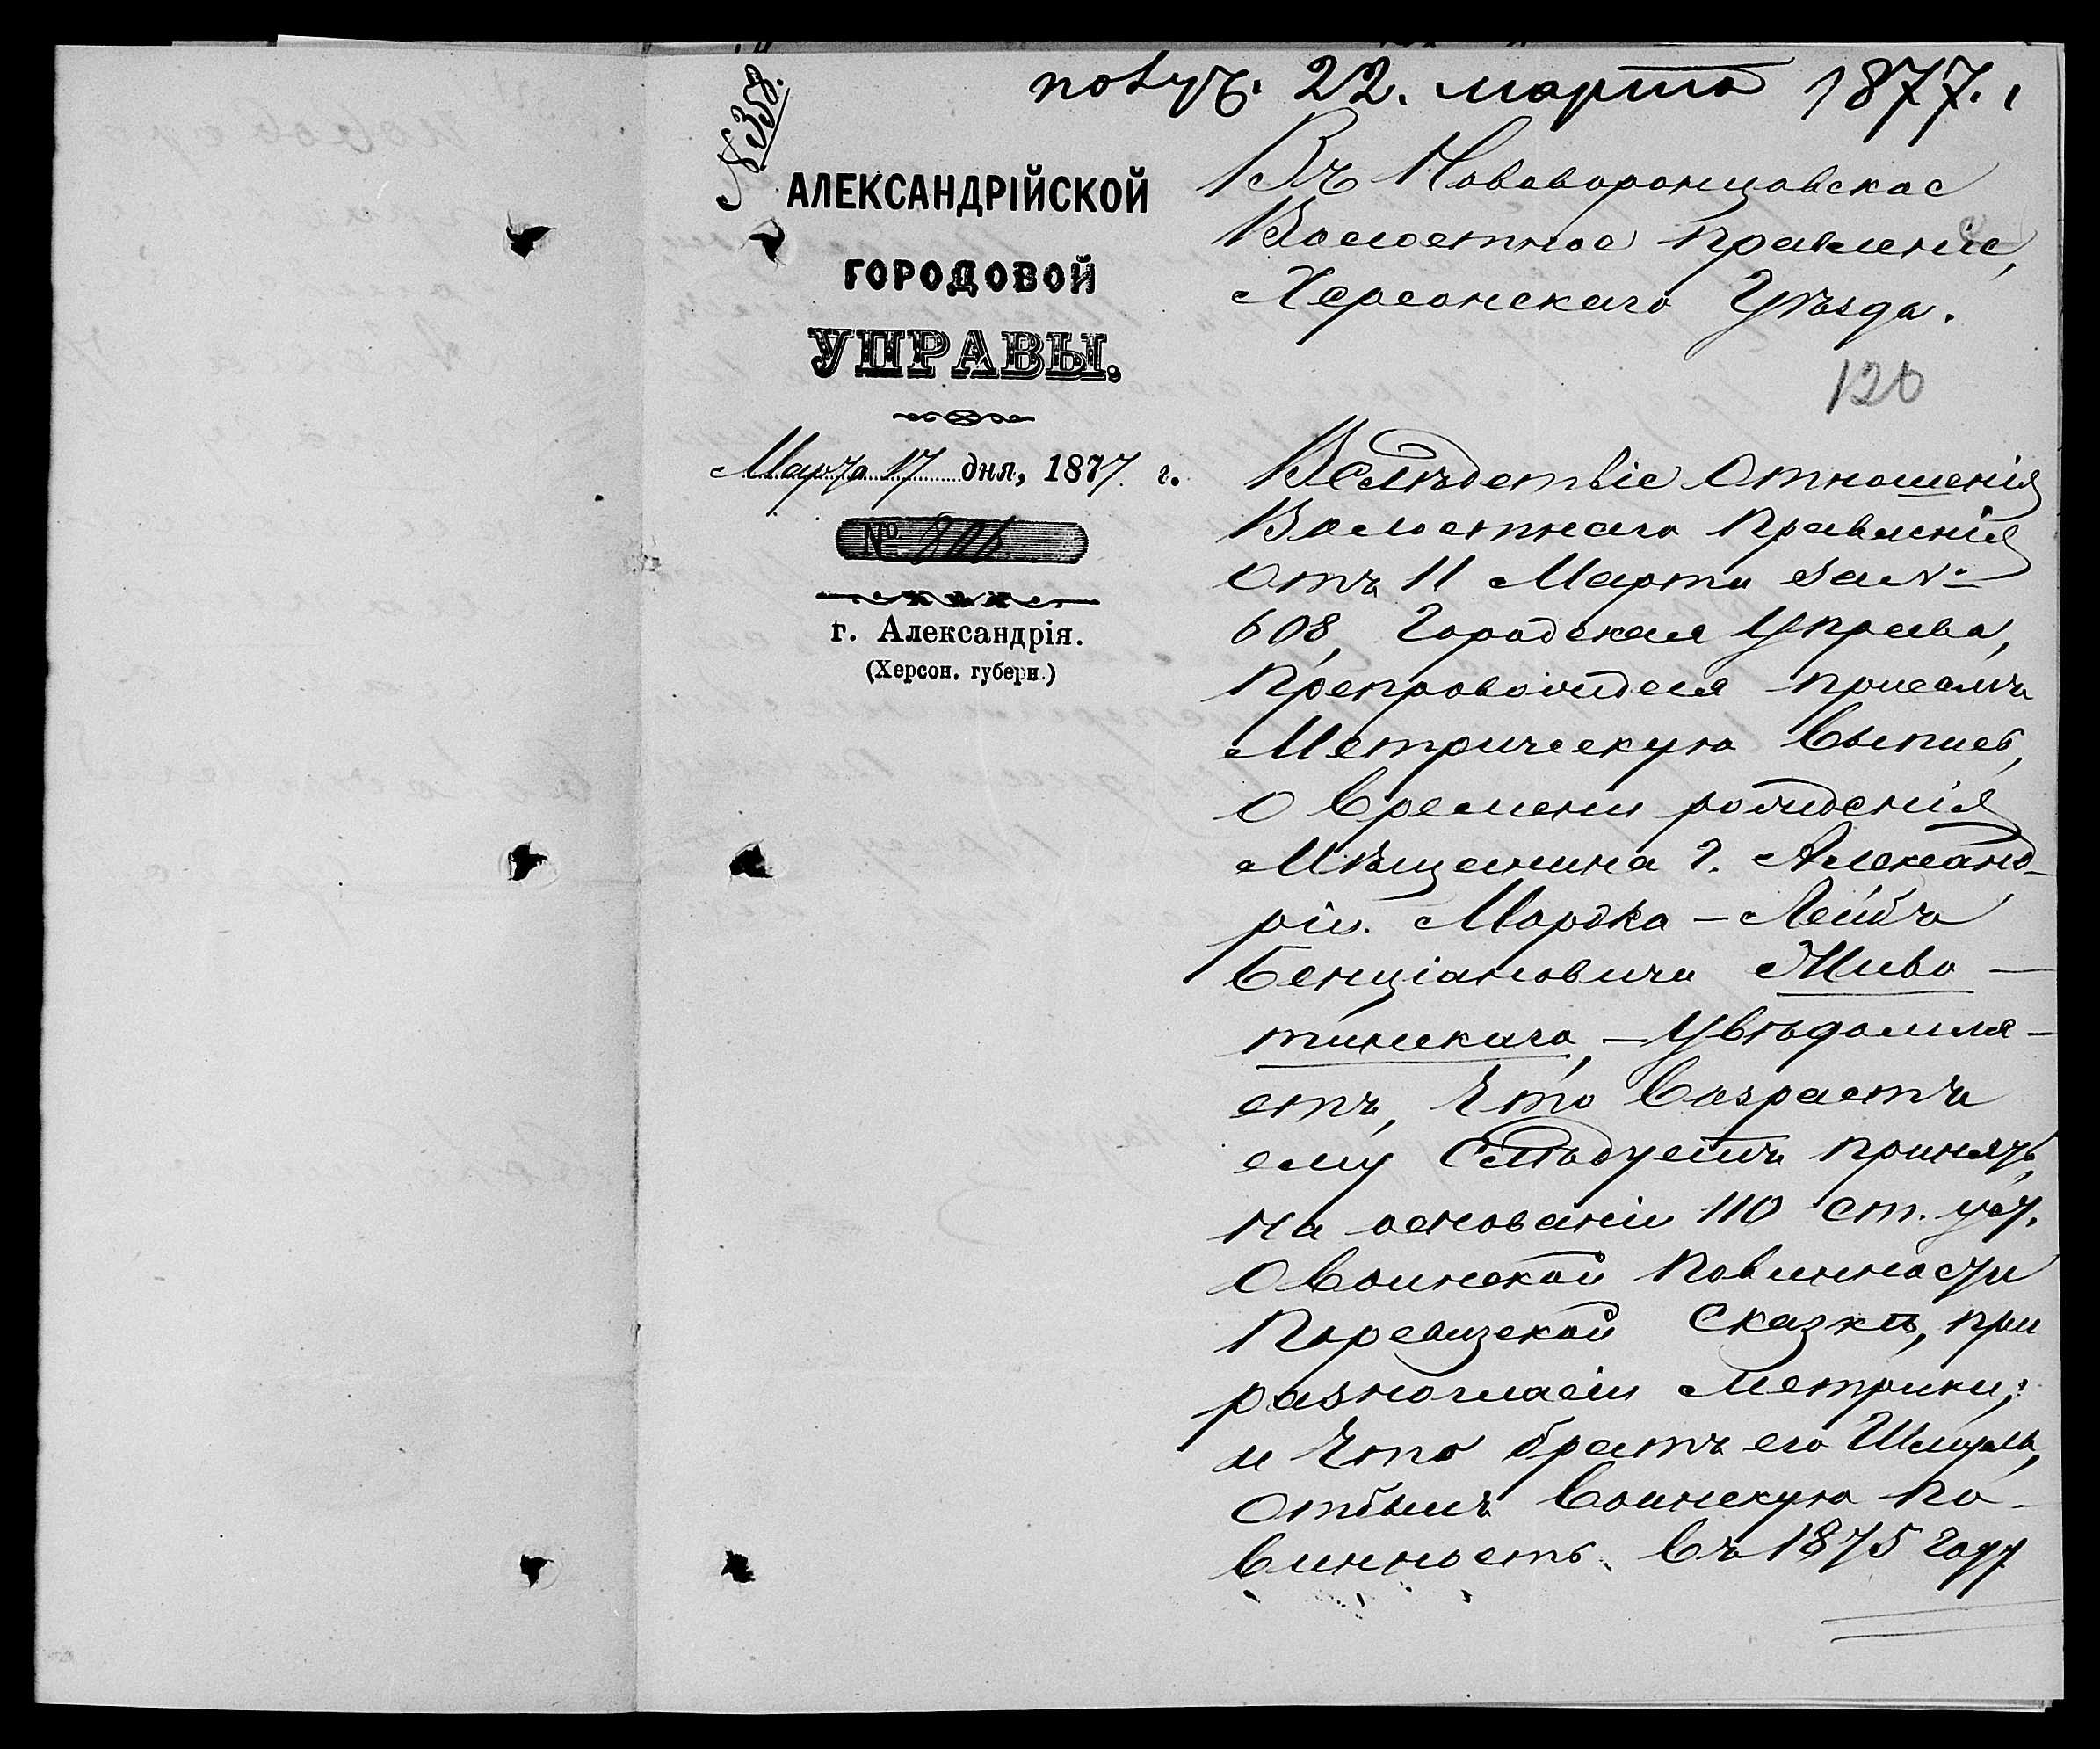 получ. 22. марта 1877. г
№ 358.
АЛЕКСАНДРІЙСКОЙ
ГОРОДОВОЙ
УПРАВЫ.
Марта 17 дня, 1877 г.
№ 806
г. Александрія.
(Херсон. губерн.)
Въ Нововоронцовское
Волостное Правленіе,
Херсонскаго Уѣзда.
120
Вслѣдствіе Отношенія
Волостнаго Правленія
отъ 11 Марта за №
608, Городская Управа,
Препровождая присемъ
Метрическую выпись,
о времени рожденія
Мѣщанина г. Александ-
ріи. Мордка-Лейба
Бенціановича Живо-
тинскаго, - увѣдомля-
етъ, что возрастъ
ему Слѣдуетъ принять,
на основаніи 110 ст. уст.
о Воинской Повинности
Поревизской Сказкѣ, при
разногласіи Метрики;
и что братъ его Шмуль,
отбылъ воинскую по-
винность въ 1875 году